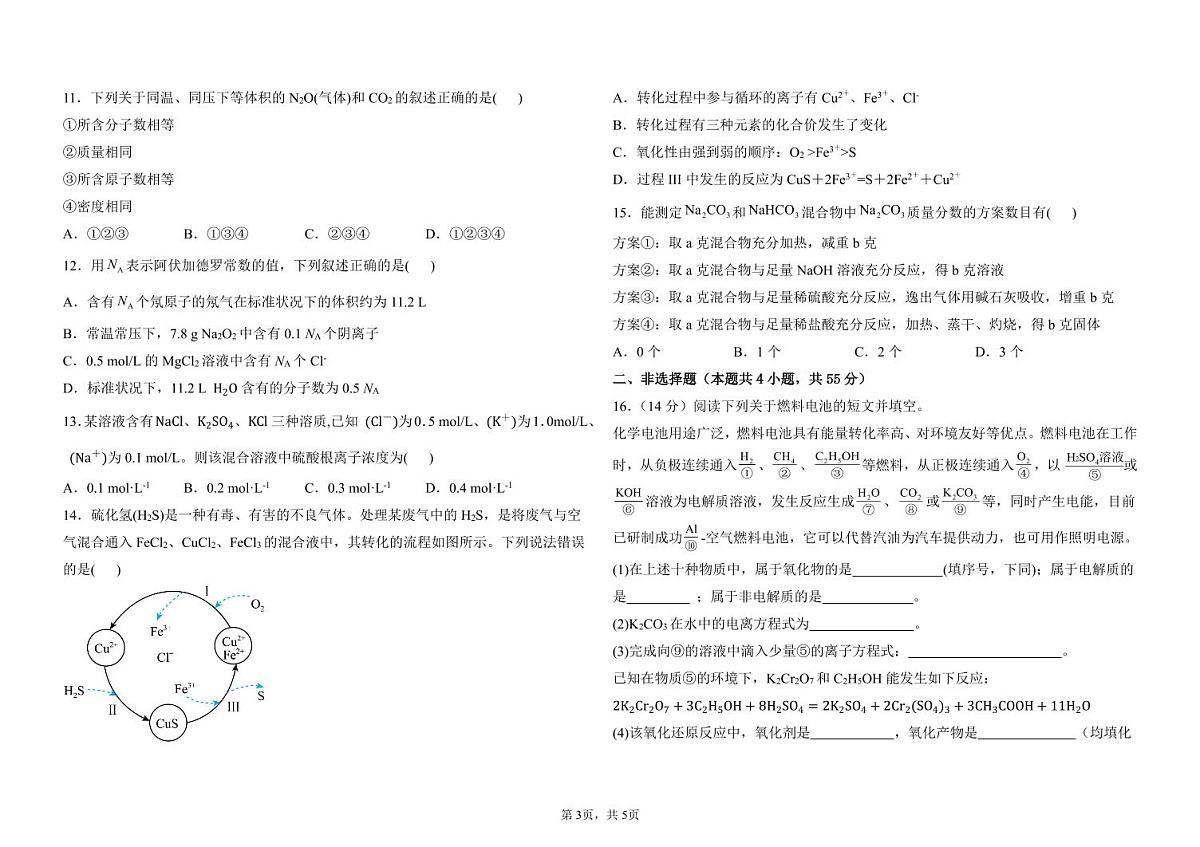 11．下列关于同温、同压下等体积的 N2O(气体)和 CO2 的叙述正确的是(      )
①所含分子数相等
②质量相同
③所含原子数相等
④密度相同
A．①②③    B．①③④    C．②③④    D．①②③④
12．用 NA 表示阿伏加德罗常数的值，下列叙述正确的是(      )
A．含有 NA 个氖原子的氖气在标准状况下的体积约为 11.2 L
B．常温常压下，7.8 g Na2O2 中含有 0.1 NA 个阴离子
C．0.5 mol/L 的 MgCl2 溶液中含有 NA 个 Cl-
D．标准状况下，11.2 L H₂O 含有的分子数为 0.5 NA
13.某溶液含有 NaCl、K₂SO₄、KCl 三种溶质,已知 (Cl⁻)为0.5 mol/L、(K⁺)为1.0mol/L、
(Na⁺)为 0.1 mol/L。则该混合溶液中硫酸根离子浓度为(      )
A．0.1 mol·L-1    B．0.2 mol·L-1    C．0.3 mol·L-1    D．0.4 mol·L-1
14．硫化氢(H2S)是一种有毒、有害的不良气体。处理某废气中的 H2S，是将废气与空
气混合通入 FeCl2、CuCl2、FeCl3 的混合液中，其转化的流程如图所示。下列说法错误
的是(      )
I
O2
Fe3+
Cu2+
Cl-
Cu2+
Fe2+
H2S
Fe3+
S
II
III
CuS
A．转化过程中参与循环的离子有 Cu2+、Fe3+、Cl-
B．转化过程有三种元素的化合价发生了变化
C．氧化性由强到弱的顺序：O2 >Fe3+>S
D．过程 III 中发生的反应为 CuS＋2Fe3+=S＋2Fe2+＋Cu2+
15．能测定 Na₂CO₃ 和 NaHCO₃ 混合物中 Na₂CO₃ 质量分数的方案数目有(      )
方案①：取 a 克混合物充分加热，减重 b 克
方案②：取 a 克混合物与足量 NaOH 溶液充分反应，得 b 克溶液
方案③：取 a 克混合物与足量稀硫酸充分反应，逸出气体用碱石灰吸收，增重 b 克
方案④：取 a 克混合物与足量稀盐酸充分反应，加热、蒸干、灼烧，得 b 克固体
A．0 个    B．1 个    C．2 个    D．3 个
二、非选择题（本题共 4 小题，共 55 分）
16.（14 分）阅读下列关于燃料电池的短文并填空。
化学电池用途广泛，燃料电池具有能量转化率高、对环境友好等优点。燃料电池在工作
时，从负极连续通入 H₂ ① 、 CH₄ ② 、 C₂H₅OH ③ 等燃料，从正极连续通入 O₂ ④ ，以 H2SO4溶液 ⑤ 或
KOH ⑥ 溶液为电解质溶液，发生反应生成 H₂O ⑦ 、 CO₂ ⑧ 或 K₂CO₃ ⑨ 等，同时产生电能，目前
已研制成功 Al ⑩ -空气燃料电池，它可以代替汽油为汽车提供动力，也可用作照明电源。
(1)在上述十种物质中，属于氧化物的是____________(填序号，下同)；属于电解质的
是_________ ；属于非电解质的是____________。
(2)K2CO3 在水中的电离方程式为______________。
(3)完成向⑨的溶液中滴入少量⑤的离子方程式：_____________________。
已知在物质⑤的环境下，K2Cr2O7 和 C2H5OH 能发生如下反应：
2K₂Cr₂O₇ + 3C₂H₅OH + 8H₂SO₄ = 2K₂SO₄ + 2Cr₂(SO₄)₃ + 3CH₃COOH + 11H₂O
(4)该氧化还原反应中，氧化剂是___________，氧化产物是_____________（均填化
第 3页，共 5页